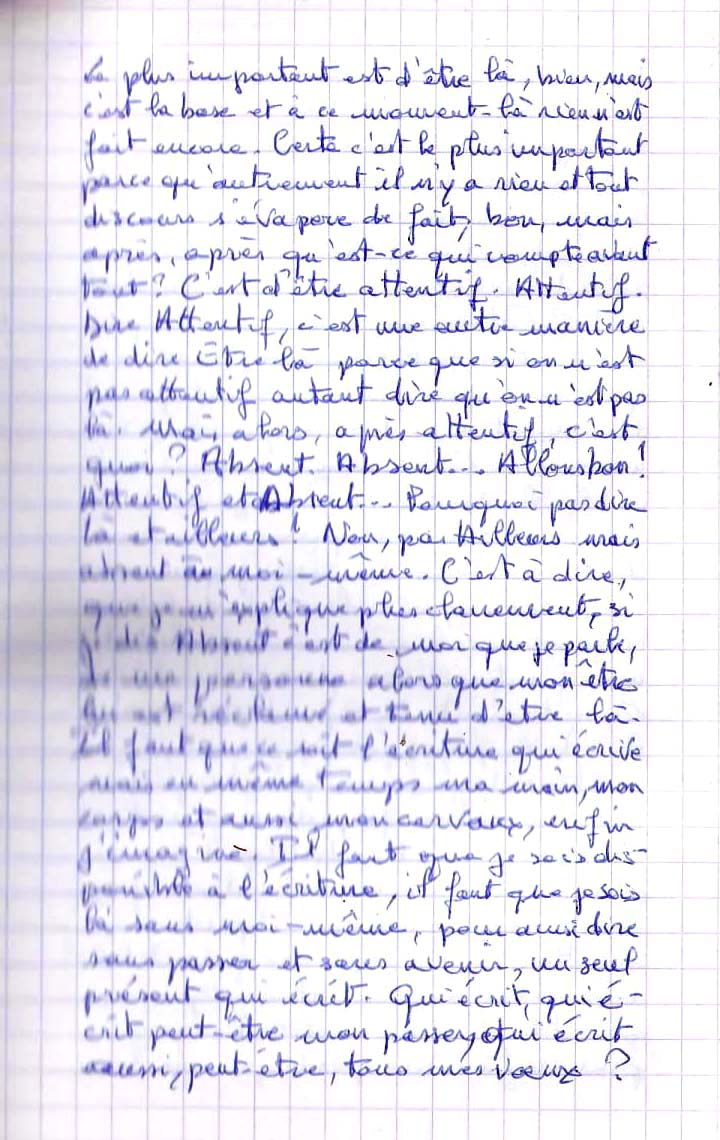 Le plus important est d'être là, bien, mais
c'est la base et à ce moment-là rien n'est
fait encore. Certe c'est le plus important
parce qu'autrement il n'y a rien et tout
discours s'évapore de fait, bon, mais
après, après qu'est-ce qui compte avant
tout? C'est d'être attentif. Attentif.
Dire Attentif, c'est une autre manière
de dire Être là parce que si on n'est
pas attentif autant dire qu'on n'est pas
là. Mais alors, après attentif, c'est
quoi? Absent. Absent... Allons bon!
Attentif et Absent... Pourquoi pas dire
là et ailleurs! Non, pas Ailleurs mais
absent à moi-même. C'est à dire,
que je m'explique plus clairement, si
je dis Absent c'est de moi que je parle,
de ma personne alors que mon être
lui est réclamé et tenu d'être là.
Il faut que ce soit l'écriture qui écrive
mais en même temps ma main, mon
corps et aussi mon cerveaux, enfin
j'imagine. Il faut que je sois dis-
ponible à l'écriture, il faut que je sois
là sans moi-même, pour ainsi dire
sans passer et sans avenir, un seul
présent qui écrit. Qui écrit, qui é-
crit peut-être mon passey qui écrit
aussi, peut-être, tous mes vœux?